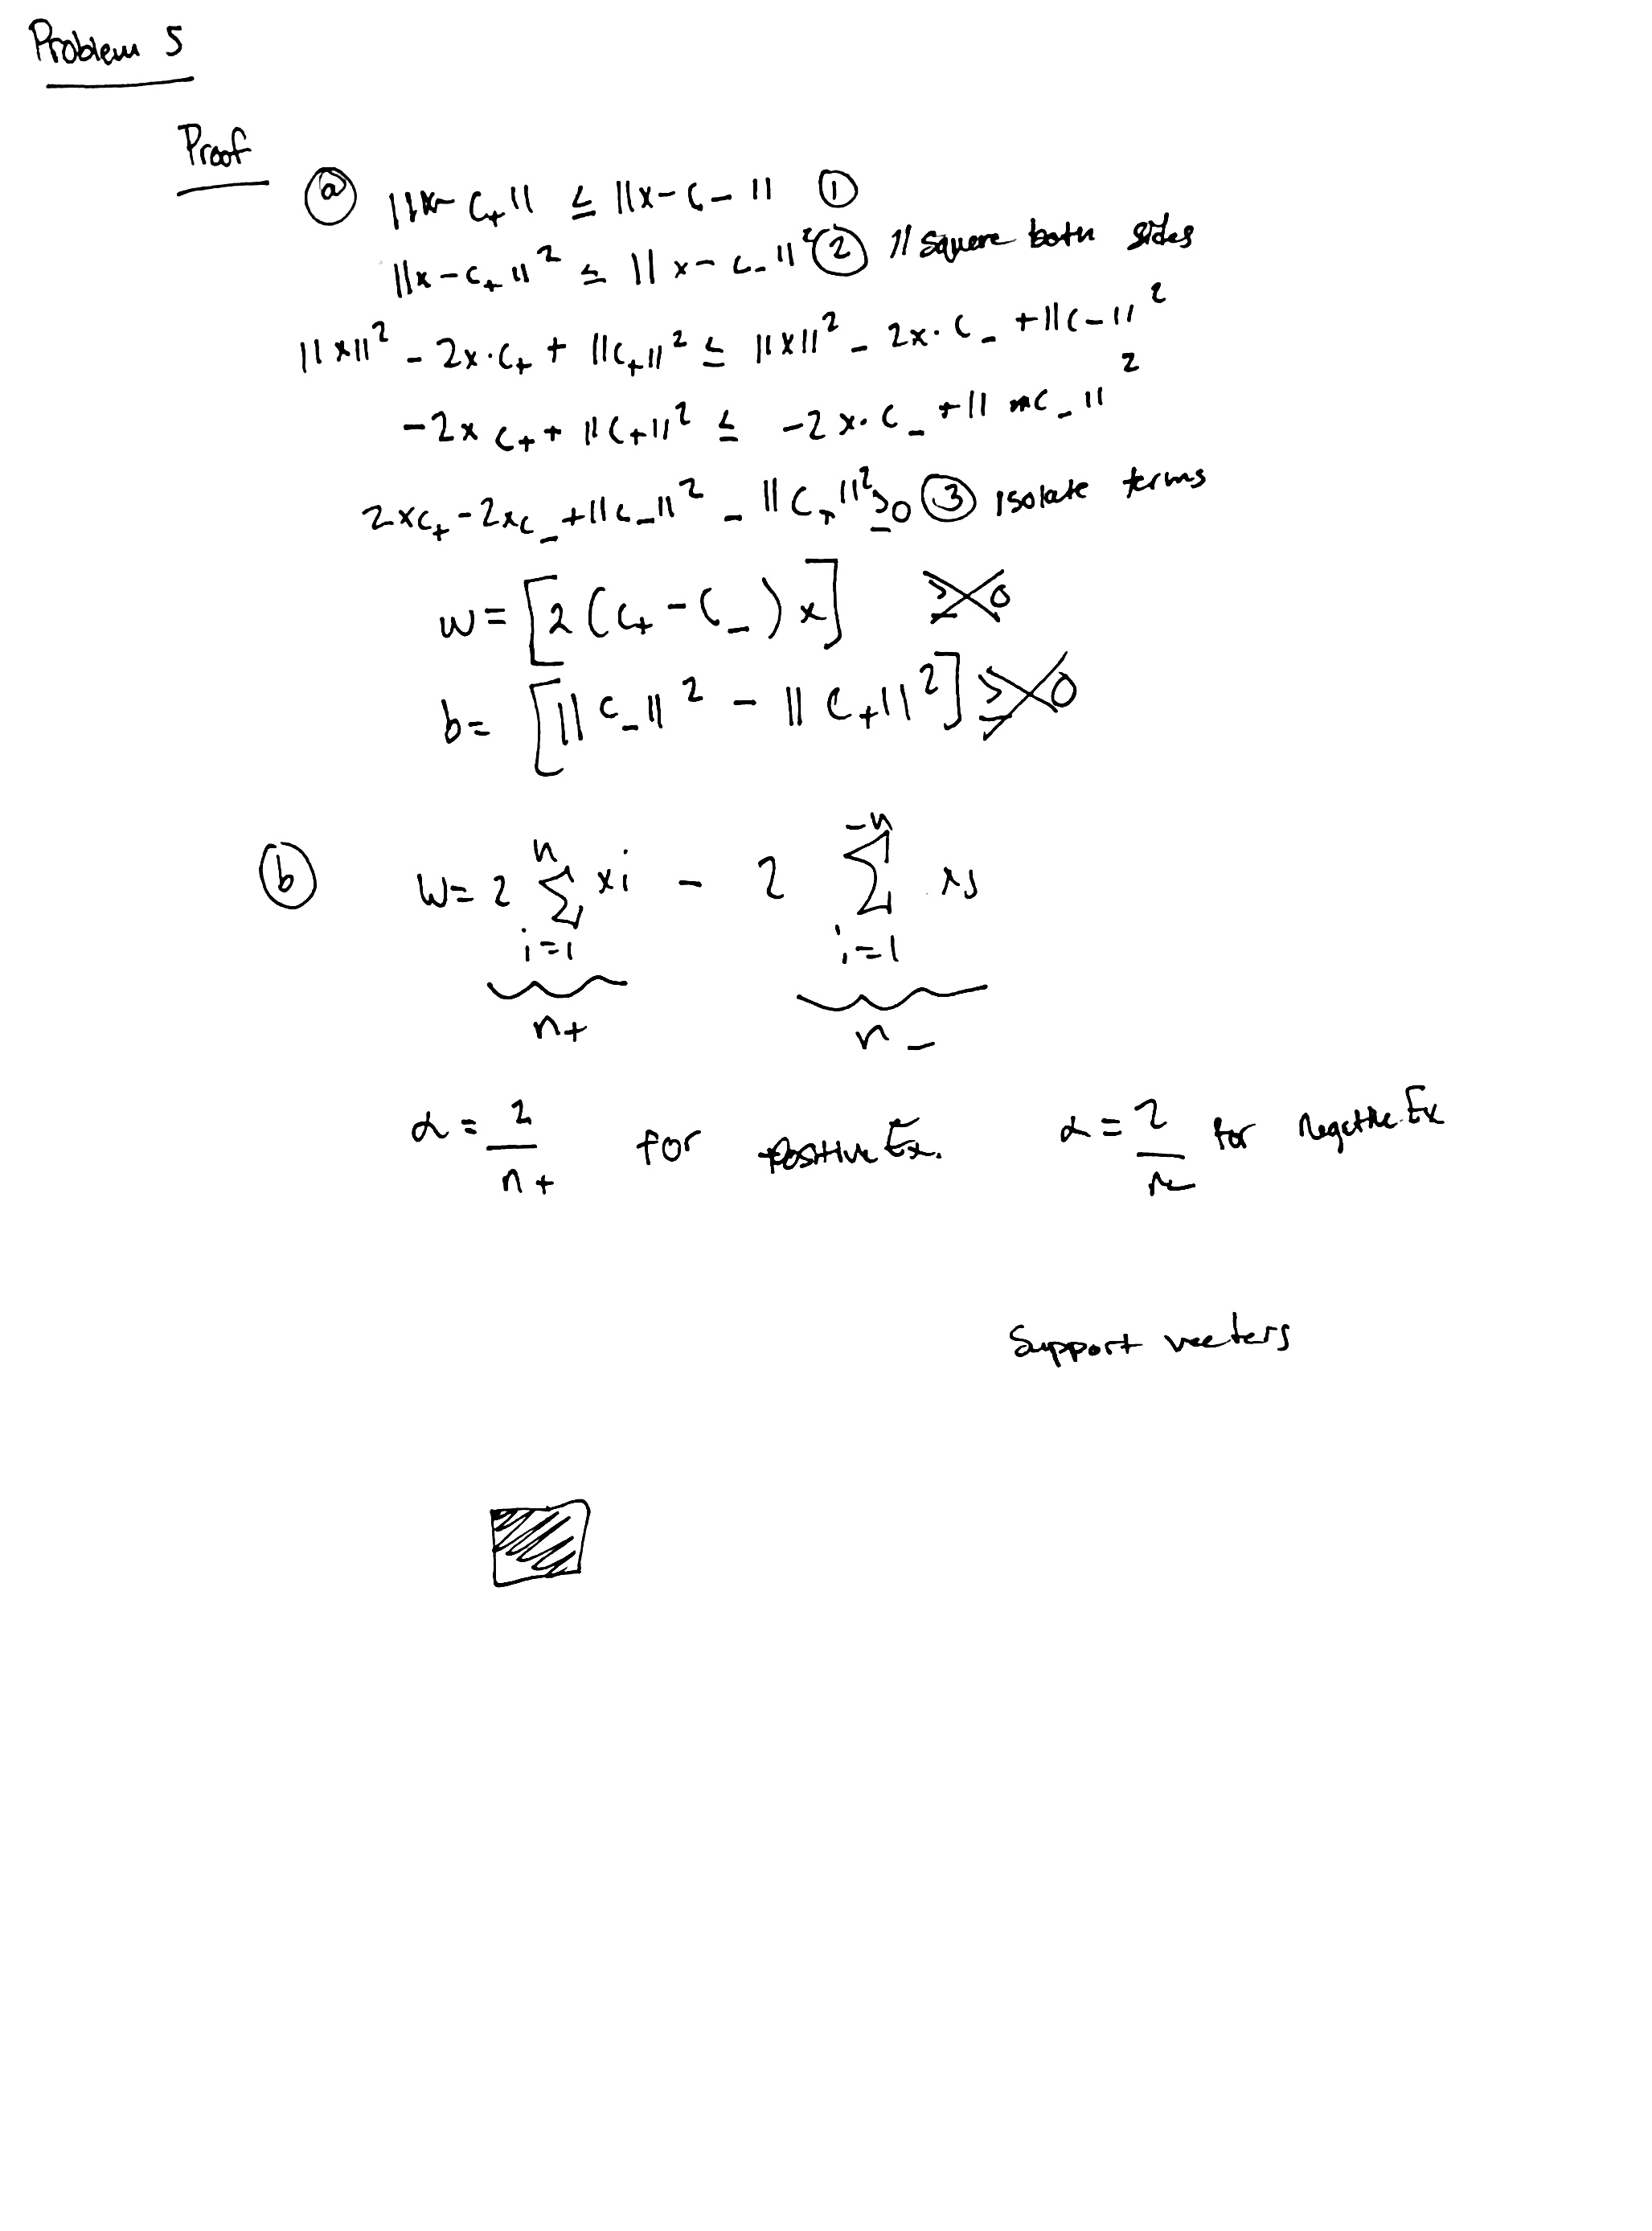 Problem 5
Proof
(a) ||x - c₊|| ≤ ||x - c₋|| ①
||x - c₊||² ≤ ||x - c₋||² ② // Square both sides
||x||² - 2x·c₊ + ||c₊||² ≤ ||x||² - 2x·c₋ + ||c₋||²
-2x c₊ + ||c₊||² ≤ -2x·c₋ + ||c₋||²
2xc₊ - 2xc₋ + ||c₋||² - ||c₊||² ≥ 0 ③ Isolate terms
w = [2(c₊ - c₋)x] ≥ 0
b = [||c₋||² - ||c₊||²] ≥ 0
(b) W = 2 ∑ⁿᵢ₌₁ xi - 2 ∑⁻ⁿᵢ₌₁ xj
n₊ n₋
α = 2/n₊ for positive Ex. α = 2/n₋ for negative Ex
Support vecters